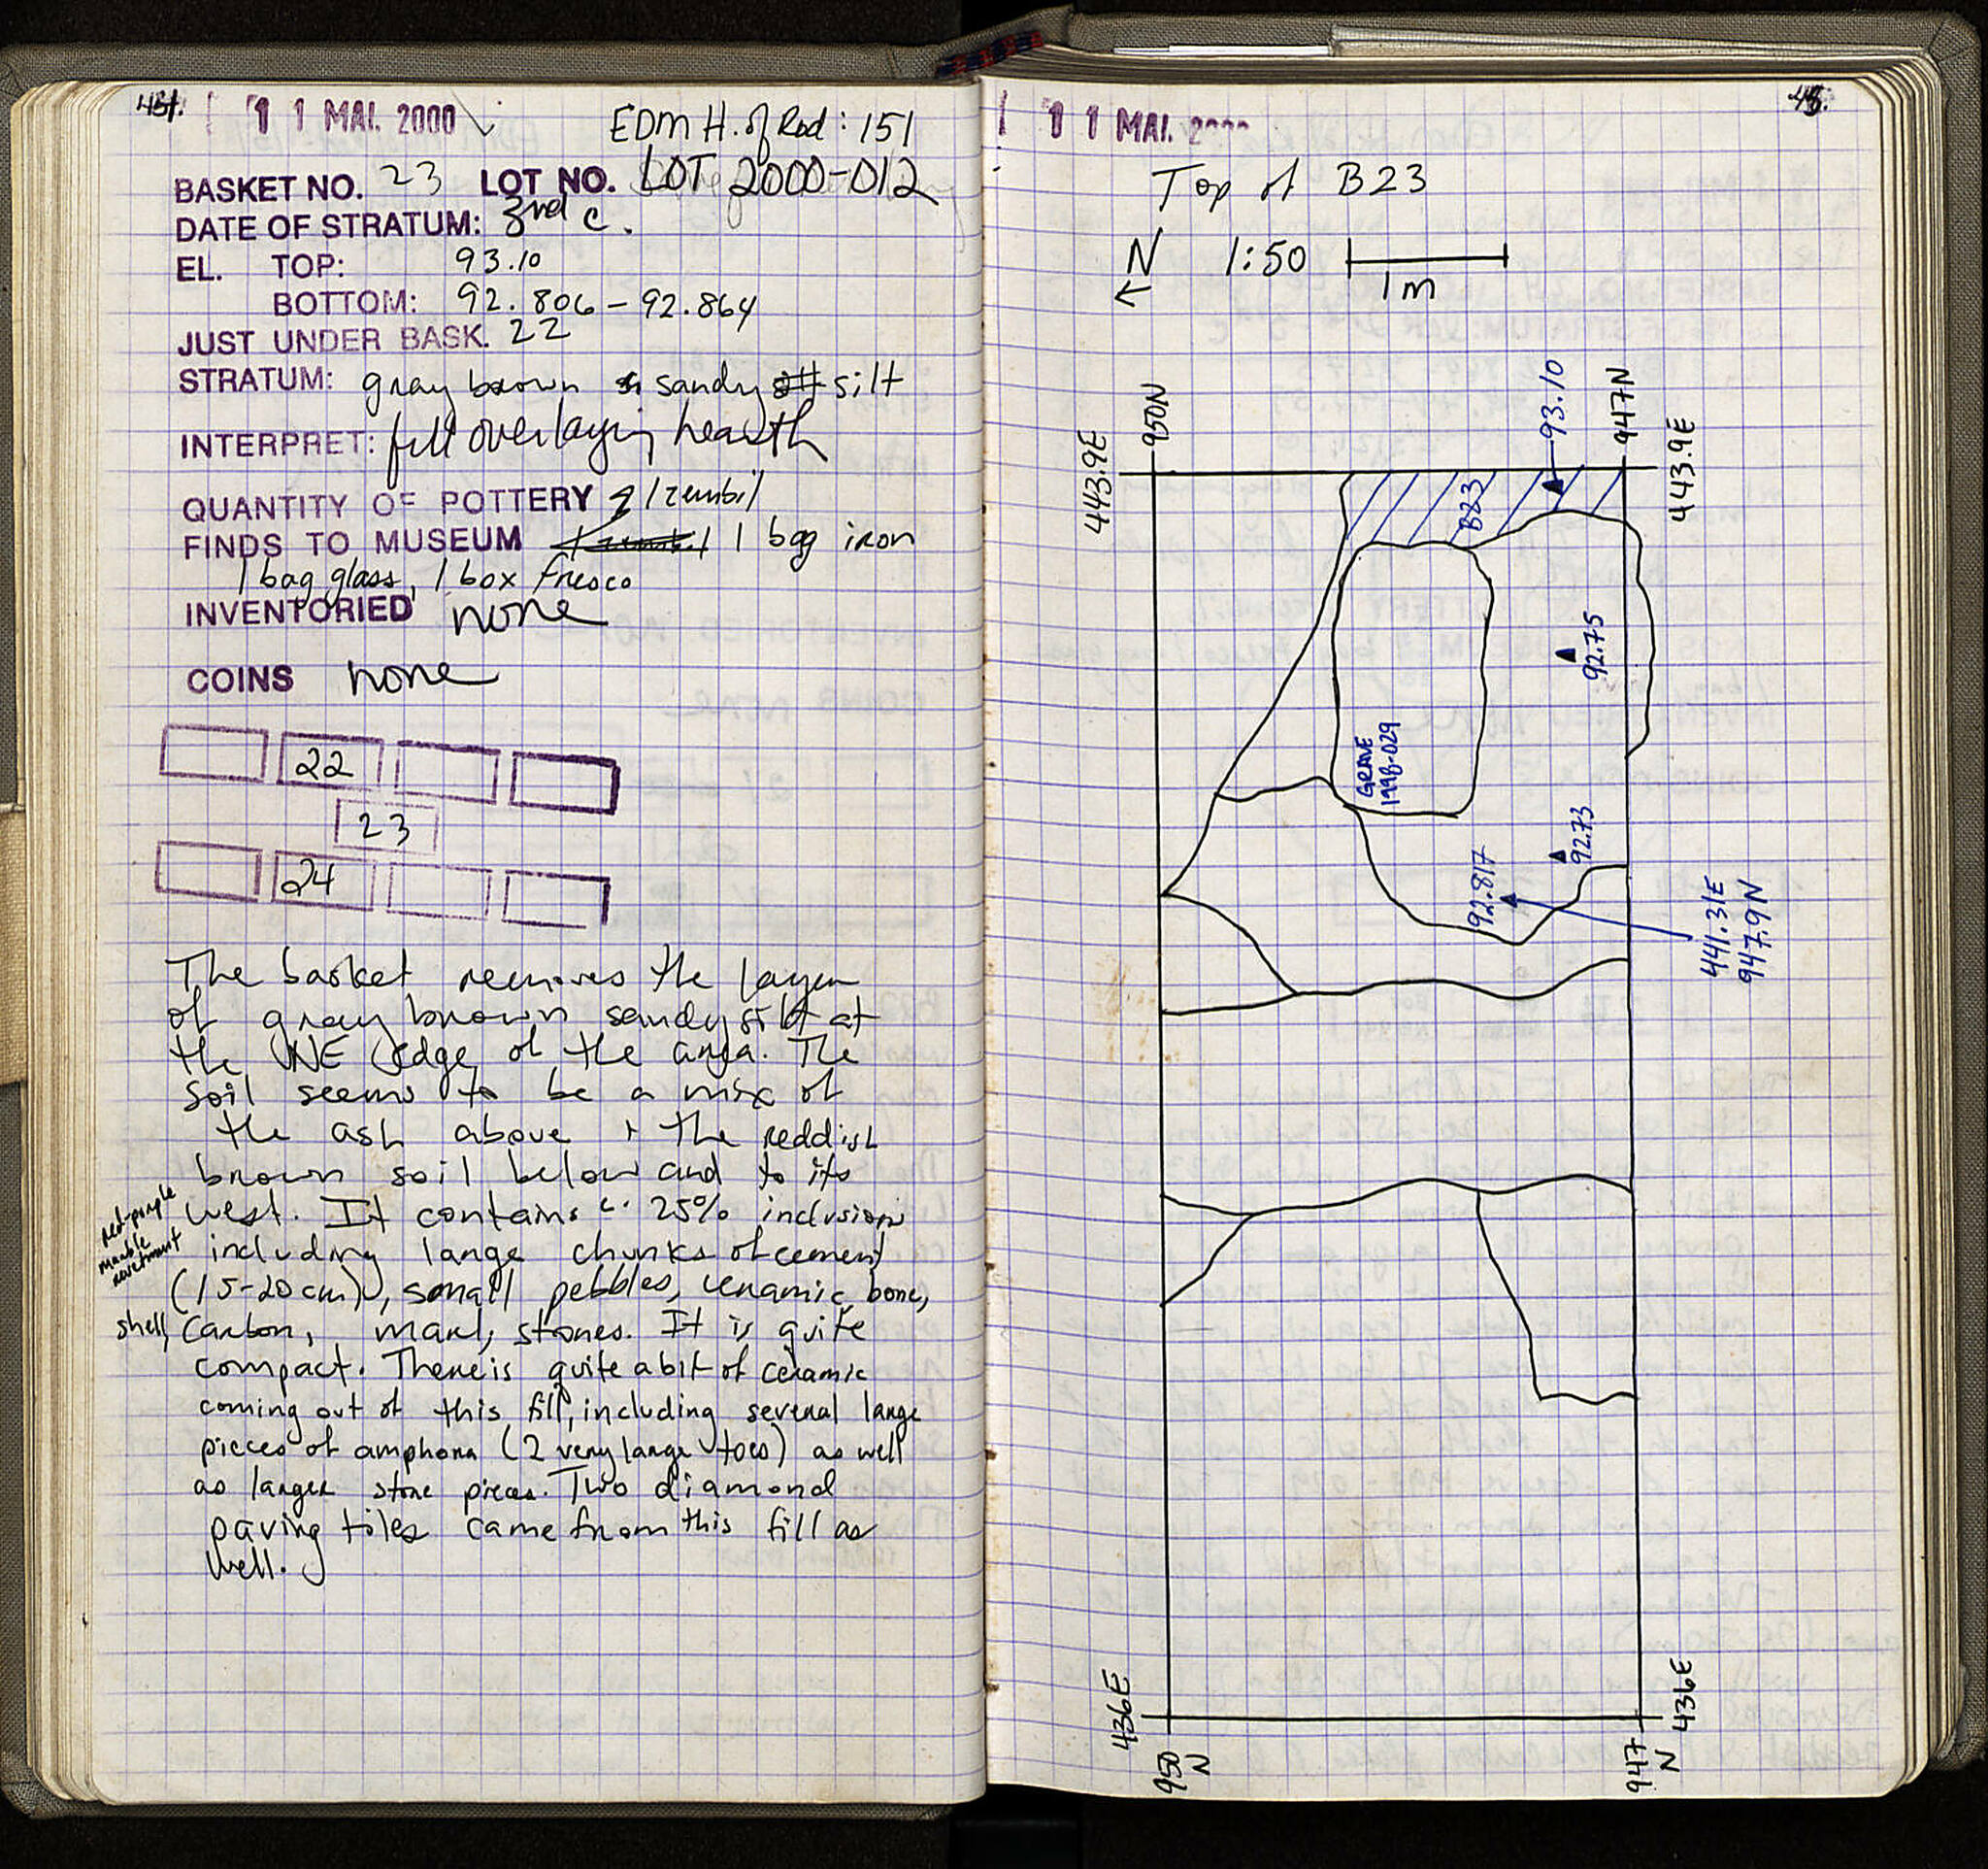 1 1 MAI. 2000
EDM H. of Rod: 151
BASKET NO. 23 LOT NO. LOT 2000-012
DATE OF STRATUM: 3rd c.
EL. TOP: 93.10
BOTTOM: 92.806 - 92.864
JUST UNDER BASK. 22
STRATUM: gray brown sandy silt
INTERPRET: fill overlaying hearth
QUANTITY OF POTTERY 1 zembil
FINDS TO MUSEUM 1 bag iron
1 bag glass, 1 box fresco
INVENTORIED none
COINS none
22
23
24
The basket removes the layer
of gray brown sandy silt at
the NE edge of the area. The
soil seems to be a mix of
the ash above + the reddish
brown soil below and to its
west. It contains c. 25% inclusions
including large chunks of cement
red-purple
marble
revetment
(15-20 cm), small pebbles, ceramic, bone,
shell, carbon, marl, stones. It is quite
compact. There is quite a bit of ceramic
coming out of this fill, including several large
pieces of amphora (2 very large toes) as well
as larger stone pieces. Two diamond
paving tiles came from this fill as
well.
1 1 MAI. 2000
Top of B23
N 1:50
1m
443.9E
950N
93.10
947N
443.9E
B23
92.75
GRAVE
1998-029
92.73
92.817
441.31E
947.9N
436E
950
N
947
N
436E